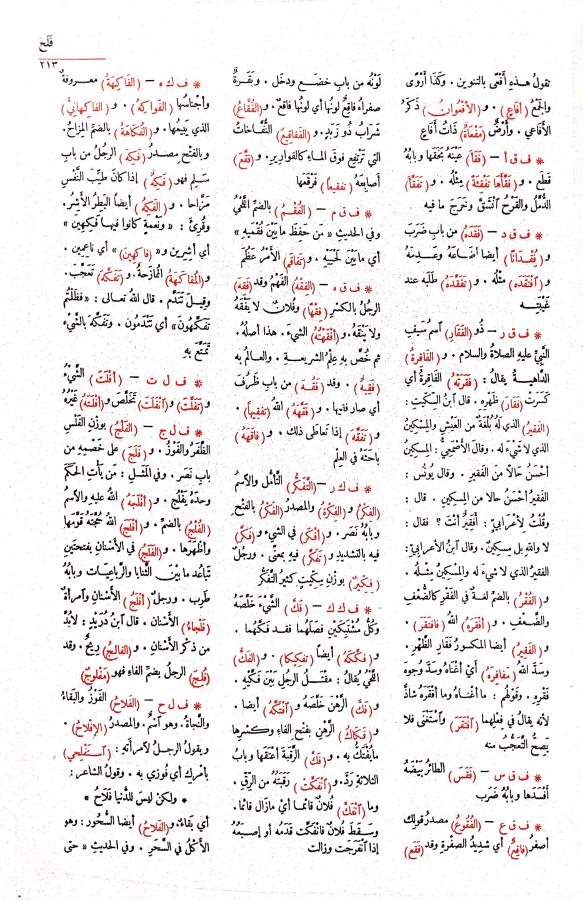 فَلَحَ
٢١٣
تقولُ هذه أفعًى بالتنوين . وكذا أرْوًى
والجَمْعُ (أفاعٍ) . و(الأُفْعُوانُ) ذَكَرُ
الأفاعي . وأرضٌ (مَفْعَاةٌ) ذاتُ أفاعٍ
* ف ق أ – (فَقَأَ) عَيْنَهُ بَخَقَها وبابُهُ
قَطَع . و(فَقَّأَهَا تَفْقِئَةً) مِثْلُه . و(تَفَقَّأَ)
الدُّمَّلُ والقَرْحُ انْشَقَّ وخَرَجَ ما فيه
* ف ق د – (فَقَدَهُ) من باب ضَرَبَ
و(فُقْدَانًا) أيضا أضاعَهُ وعَدِمَهُ
و(افْتَقَدَهُ) مثْلُه . و(تَفَقَّدَهُ) طَلَبَه عند
غَيْبَتِه
* ف ق ر – ذُو (الفَقَارِ) اسمُ سَيفِ
النَّبيِّ عليه الصلاة والسلام . و(الفاقِرةُ)
الدَّاهِيةُ يقالُ : (فَقَرَتْهُ) الفاقِرةُ أي
كَسَرَتْ (فَقَارَ) ظَهْرِه . قال ابنُ السِّكِّيتِ :
(الفقيرُ) الذي لَهُ بُلْغَةٌ من العَيْشِ والمِسْكِينُ
الذي لا شيءَ له . وقالَ الأصْمَعِيُّ : المِسْكِينُ
أحْسَنُ حالًا من الفَقيرِ . وقال يُونُس :
الفقيرُ أحْسَنُ حالا من المِسكينِ . قال :
وقُلْتُ لأعْرابيّ : أفَقِيرٌ أنْتَ ؟ فقال :
لا والله بل مِسكينٌ . وقال ابنُ الأعرابي :
الفقيرُ الذي لا شيءَ له والمِسْكينُ مِثْلُه .
و(الفُقْرُ) بالضمّ لغةٌ في الفَقْرِ كالضُّعْفِ
والضَّعْفِ . و(أفْقَرَهُ) اللهُ (فافتَقَر) .
و(الفَقِيرُ) أيضا المكسورُ فَقَارِ الظَّهْرِ .
وسَدَّ اللهُ (مَفَاقِرَهُ) أيْ أغْنَاهُ وسَدَّ وُجوهَ
فَقْرِهِ . وقَوْلُهُمْ : ما أغناهُ وما أفْقَرَهُ شاذٌّ
لأنه يقالُ في فِعْلِهِما (افتَقَر) واسْتَغْنَى فلا
يَصِحُّ التَّعَجُّبُ منه
* ف ق س – (فَقَسَ) الطائرُ بَيْضَهُ
أفْسَدها وبابُهُ ضَرَبَ
* ف ق ع – (الفُقُوعُ) مصدرُ قولِك
أصفرُ (فاقِعٌ) أي شديدُ الصفرةِ وقد (فَقَع)
لَوْنُه من باب خَضَع ودخَل . وبَقَرةٌ
صفراءُ فاقِعٌ لونُها أي لونُها فاقِعٌ . و(الفُقَّاعُ)
شَرابٌ ذُو زَبَدٍ . و(الفقاقيعُ) النُّفّاخاتُ
التي تَرتَفِع فوقَ الماءِ كالقواريرِ . و(فَقَّعَ)
أصابِعَهُ (تفقيعاً) فَرْقَعَها
* ف ق م – (الفُقْمُ) بالضمِّ اللَّحْيُ
وفي الحديث « مَن حَفِظَ ما بَيْنَ فُقْمَيْهِ »
أي ما بَيْنَ لَحْيَيْهِ . و(تفاقَم) الأمْرُ عظُم
* ف ق ه – (الفِقْهُ) الفَهْمُ وقد (فَقِه)
الرجُلُ بالكَسْرِ (فِقْهًا) وفلانٌ لا يَفْقَهُ
ولا يَنْقَهُ . و(أفْقَهْتُهُ) الشيءَ . هذا أصلُه .
ثم خُصَّ به عِلمُ الشريعةِ . والعالمُ به
(فَقِيهٌ) . وقد (فَقُهَ) من باب ظَرُفَ
أي صار فقيها . و(فَقَّهَهُ) اللهُ (تفقيهاً) .
و(تَفَقَّهَ) إذا تَعاطَى ذلك . و(فاقَهَهُ)
باحَثَهُ في العِلْم
* ف ك ر – (التَّفَكُّرُ) التأمُّل والاسْمُ
(الفِكْرُ) و(الفِكْرَةُ) والمصدرُ (الفَكْرُ) بالفتح
وبابُهُ نَصَر . و(أفكَرَ) في الشيءِ و(فَكَّرَ)
فيه بالتشديدِ و(تَفَكَّرَ) فيهِ بمعنًى . ورجلٌ
(فِكِّيرٌ) بوزنِ سِكِّيتٍ كثيرُ التَّفَكُّرِ
* ف ك ك – (فَكَّ) الشَّيءَ خَلَّصَهُ
وكُلُّ مشْتَبِكَيْنِ فَصَلَهُما فقد فَكَّهما .
و(فَكَّكَهُ) أيضاً (تفكيكا) . و(الفَكُّ)
اللَّحْيُ يُقالُ : مَقْتَلُ الرجُلِ بَيْنَ فَكَّيْهِ .
و(فَكَّ) الرَّهْنَ خَلَّصَهُ و(افْتَكَّهُ) أيضا .
و(فَكَاكُ) الرَّهْنِ بفتح الفاء وكسرها
ما يُفْتَكُّ به . و(فَكَّ) الرَّقَبَةَ أعْتَقَها وبابُ
الثلاثةِ رَدَّ . و(انْفَكَّتْ) رَقَبَتُه من الرِّقِّ .
وما (انْفَكَّ) فلانٌ قائمًا أي مازال قائمًا .
وسَقَط فلانٌ فانْفَكَّت قَدَمُه أو إصبَعُه
إذا انْفَرَجَت وزالَتْ
* ف ك ه – (الفاكِهَةُ) معروفةٌ
وأجناسُها (الفَواكِهُ) . و(الفاكهانيُّ)
الذي يَبِيعُها . و(الفُكَاهَةُ) بالضمّ المِزَاحُ .
وبالفتح مصدرُ (فَكِهَ) الرجُلُ من باب
سَلِم فهو (فَكِهٌ) إذا كان طيِّبَ النَّفْسِ
مَزَّاحا . و(الفَكِهُ) أيضاً البَطِرُ الأشِرُ .
وقُرِئَ : « ونَعْمةٍ كانوا فيها فَكِهين »
أي أشِرين و« (فاكهين) » أي ناعمين .
و(المُفاكَهَةُ) المُمازَحةُ . و(تَفَكَّهَ) تَعَجَّبَ .
وقيلَ تَنَدَّمَ . قال الله تعالى : « فظَلْتُمْ
تَفَكَّهونَ » أي تَنَدَّمون . وتَفَكَّه بالشَّيءِ
تَمَتَّعَ به
* ف ل ت – (أفْلَتَ) الشَّيءُ
و(تَفَلَّتَ) و(انْفَلَتَ) تَخَلَّصَ و(أفْلَتَهُ) غَيْرُه
* ف ل ج – (الفَلْجُ) بوزنِ الفَلْسِ
الظَّفَرُ والفَوْزُ . و(فَلَجَ) على خَصْمِهِ من
بابِ نصَر . وفي المثَل : مَن يَأتِ الحَكَمَ
وحدَهُ يَفْلُجْ . و(أفْلَجَهُ) اللهُ عليه والاسمُ
(الفُلْجُ) بالضمّ . و(أفْلَجَ) اللهُ حُجَّتَه قَوَّمَها
وأظْهَرها . و(الفَلَجُ) في الأسْنانِ بفتحتين
تَباعُد ما بَيْنَ الثَّنايا والرَّبَاعِيَات وبابُهُ
طَرِب . ورجلٌ (أفْلَجُ) الأسْنانِ وامرأةٌ
(فَلْجاءُ) الأسْنان . قال ابنُ دُرَيْدٍ : لا بُدَّ
من ذكرِ الأسْنانِ . و(الفالِجُ) رِيحٌ . وقد
(فُلِجَ) الرجل بضمّ الفاءِ فهو (مَفْلوجٌ)
* ف ل ح – (الفَلاحُ) الفَوْزُ والبَقاءُ
والنَّجاةُ . وهو اسمٌ . والمصدرُ (الإفْلاحُ) .
ويقولُ الرجلُ لأمرأتِه : (استَفْلِحي)
بأمرِكِ أي فُوزِي به . وقولُ الشاعرِ :
* ولكنْ ليس للدُّنيا فَلاحُ *
أي بَقاءٌ . و(الفَلاحُ) أيضا السَّحُور : وهو
الأَكْلُ في السَّحَرِ . وفي الحديث « حتى